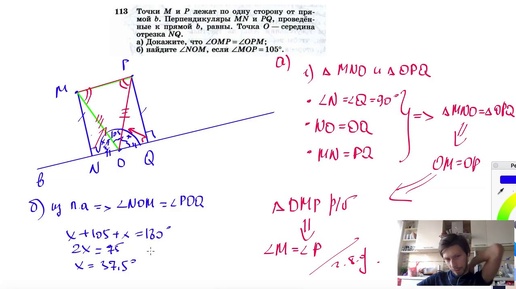 113 Точки M и P лежат по одну сторону от прямой b. Перпендикуляры MN и PQ, проведённые к прямой b, равны. Точка O — середина отрезка NQ.
а) Докажите, что ∠OMP = ∠OPM;
б) найдите ∠NOM, если ∠MOP = 105°.
а)
1) △ MNO и △OPQ
• ∠N = ∠Q = 90°
• NO = OQ
• MN = PQ
=> △MNO = △OPQ
OM = OP
△ OMP р/б
∠M = ∠P
ч.т.д.
M
P
N
O
Q
b
б) из п.а => ∠NOM = ∠POQ
x + 105 + x = 180°
2x = 75
x = 37,5°